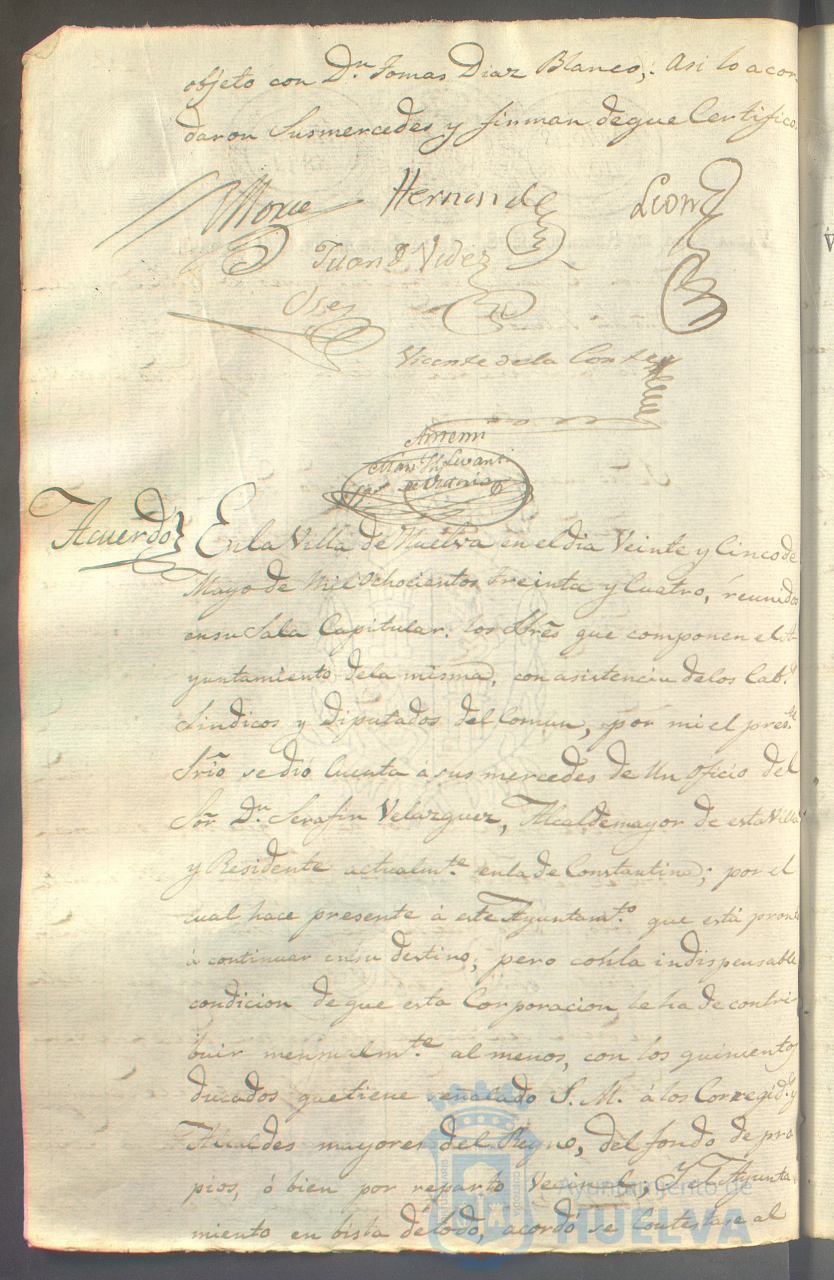 objeto con Dn. Tomas Diaz Blanco; Asi lo acor-
daron Susmercedes y firman deque Certifico.
Hernandez
Leon
Juan Videz
Vicente de la Corte
Antemi
Acuerdo
En la Villa de Huelva en el dia Veinte y Cinco de
Mayo de Mil Ochocientos Treinta y Cuatro, reunidos
ensu Sala Capitular los Sres que componen el A-
yuntamiento dela misma, con asistencia delos Cabs.
Sindicos y Diputados del Comun, por mi el preste.
Srio se dió Cuenta á sus mercedes de Un Oficio del
Sor. Dn. Serafin Velazquez, Alcaldemayor de esta Villa
y Residente actualmte. enla de Constantina; por el
cual hace presente á este Ayuntamto. que está pronto
á continuar ensu destino; pero conla indispensable
condicion deque esta Corporacion, le ha de contri-
buir mensualmte. al menos, con los quinientos
ducados quetiene señalado S. M. á los Corregidrs. y
Alcaldes mayores del Reyno, del fondo de pro-
pios, ó bien por reparto Vecinal, Y el Ayunta-
miento en bista de todo, acordó se Contestase al
Ayuntamiento de
HUELVA